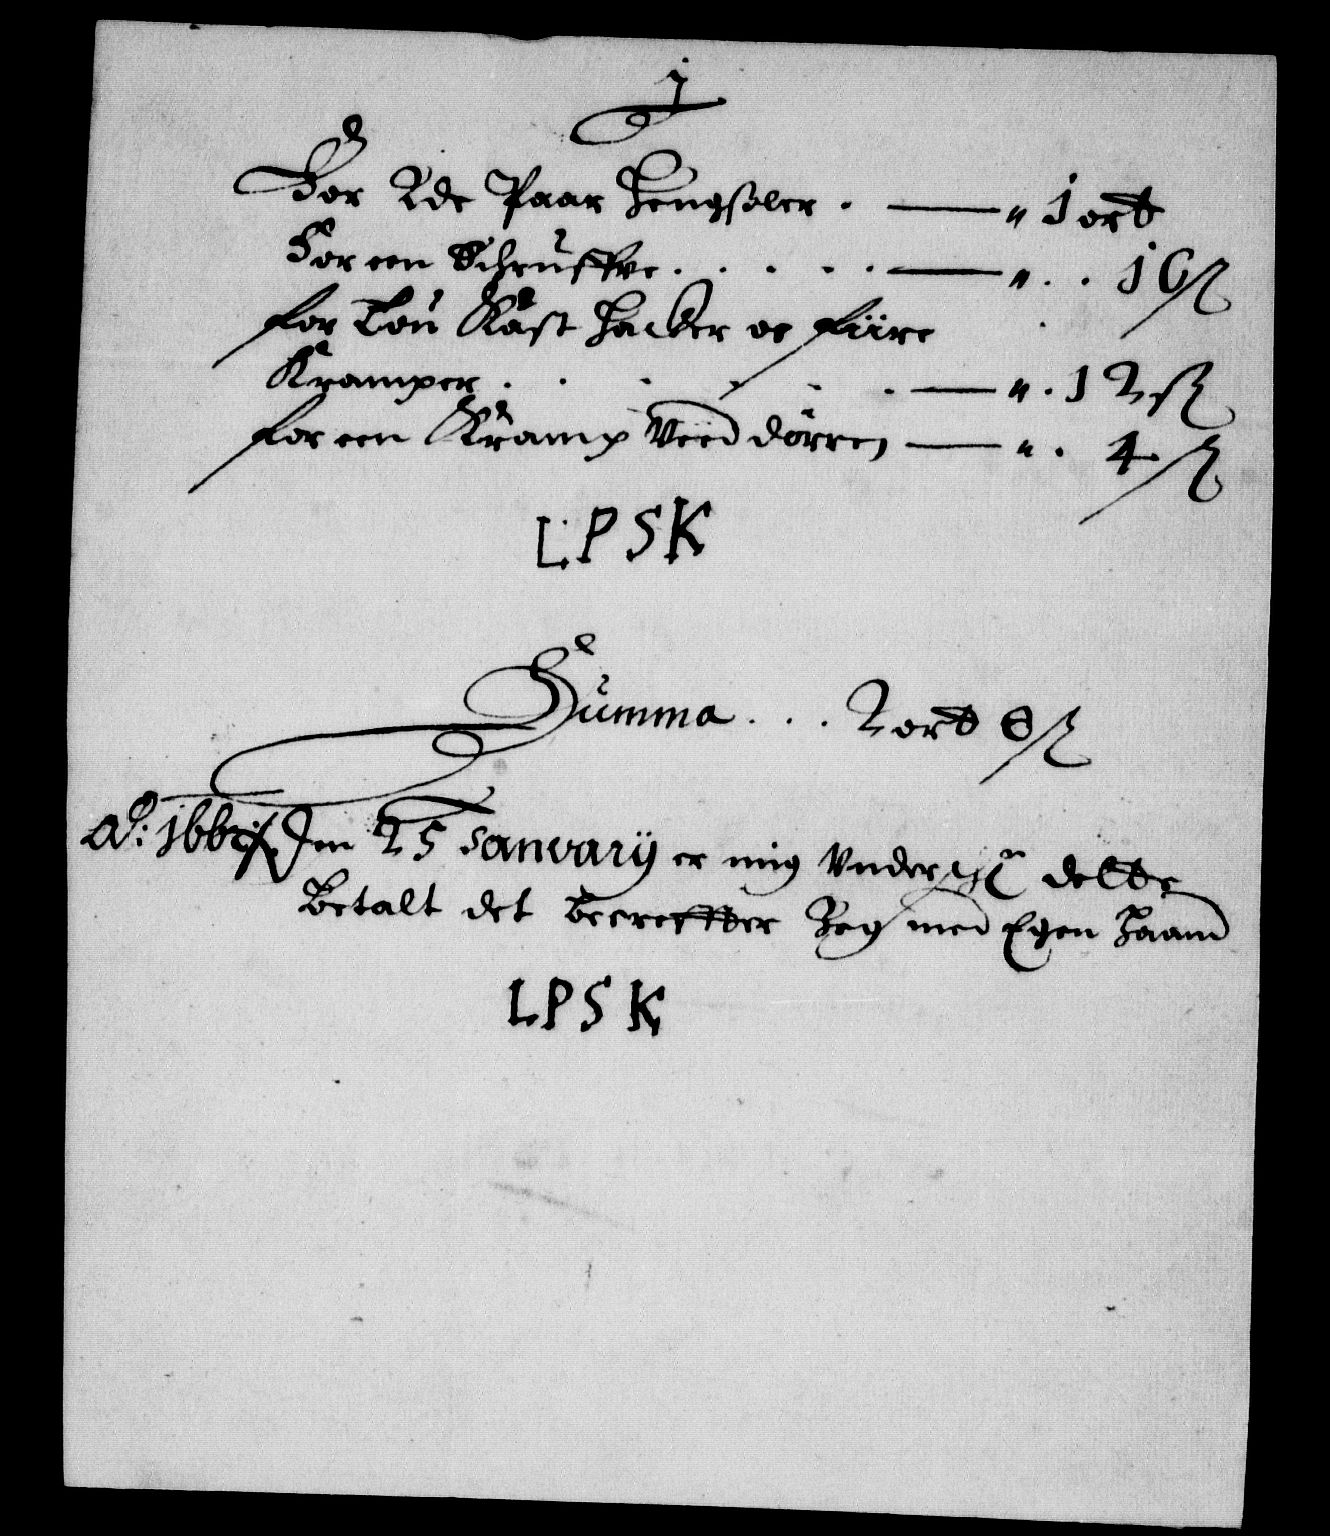 j
For 2de Paar Hengßler . — " 1 ort
For een Schruffve . . . . . — " . . 16 ß
for Tou Kast Hacker oc fiire
Kramper . . . . . . — " . 12 ß
for een Kramp Veed dörren — " . 4 ß
LPSK
Summa . . . 2 ort 8 ß
Ao: 166 den 25 Januarij er mig Vnder dette
Betalt det becreffter Jeg med Egen Haand
LPSK